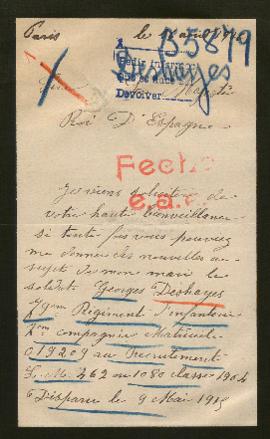 Paris le
A B5849
Deshayes
Devolver
Majesté
Roi D'Espagne
Fecho
Je viens solliciter de
votre haute bienveillance
si toute fois vous pouviez
me donner des nouvelles au
sujet de mon mari le
soldat Georges Deshayes
Régiment d'infanterie
compagnie Matricule
01920 au recrutement
L. M. 362 ou 1080 classe 1904
Disparu le 9 Mai 1915